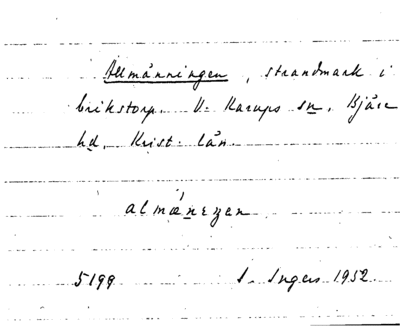 Allmänningen, strandmark i
Erikstorp. V. Karups sn. Bjäre
hd. Krist. län.
almǽnɛŋen
5199 I. Ingers 1952.